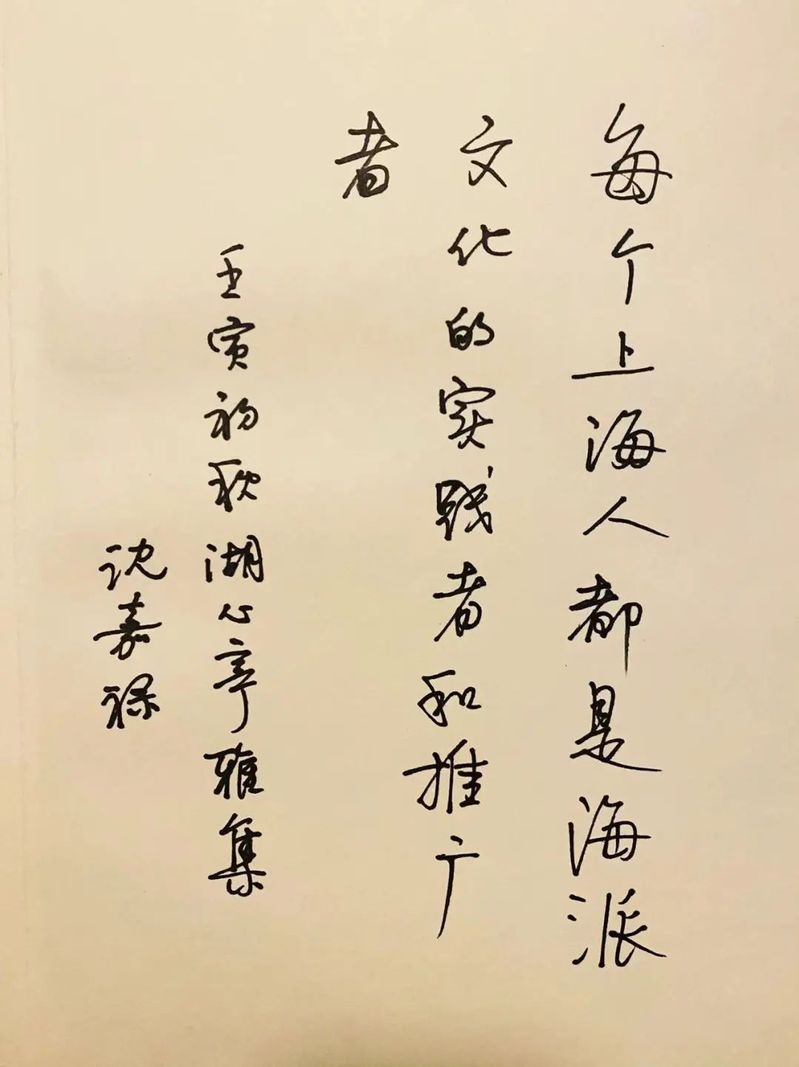 每个上海人都是海派
文化的实践者和推广
者
壬寅初秋湖心亭雅集
沈嘉禄